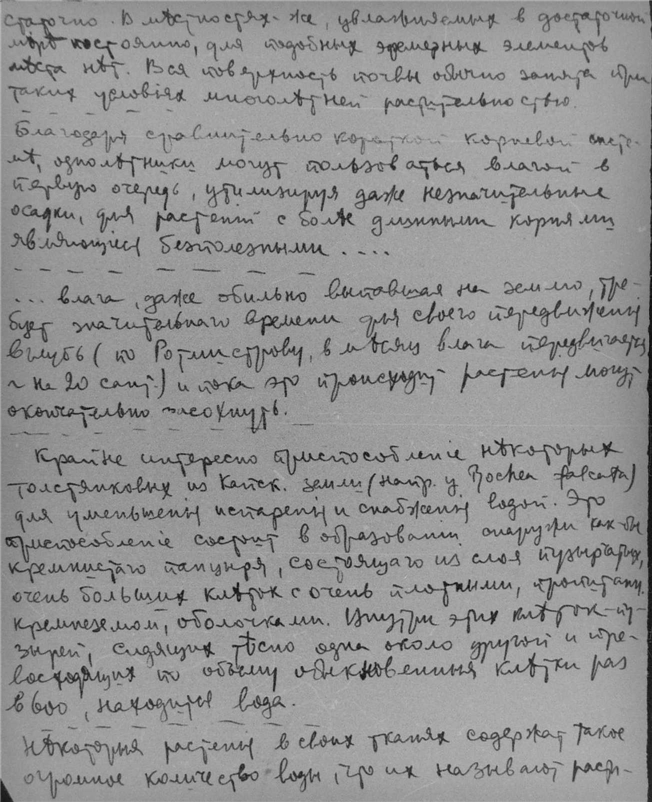 статочно. В мѣстностях-же, увлажняемых в достаточной
мѣрѣ постоянно, для подобных эфемерных элементов
мѣста нѣт. Вся поверхность почвы обычно занята при
таких условіях многолѣтней растительностью.
Благодаря сравнительно короткой корневой систе-
мѣ, однолѣтники могут пользоваться влагой в
первую очередь, утилизируя даже незначительные
осадки, для растеній с болѣе длинными корнями
являющіеся безполезными . . . .
... влага, даже обильно выпавшая на землю, тре-
бует значительнаго времени для своего передвиженія
вглубь (по Ротмистрову, в мѣсяц влага передвигается
на 20 сант.) и пока это происходит растенія могут
окончательно засохнуть.
Крайне интересно приспособленіе нѣкоторых
толстянковых из Капск. земли (напр. у Rochea falcata)
для уменьшенія испаренія и снабженія водой. Это
приспособленіе состоит в образованіи снаружи как-бы
кремнистаго панцыря, состоящаго из слоя пузырчатых,
очень больших клѣток с очень плотными, пропитан.
кремнеземом, оболочками. Внутри этих клѣток-пу-
зырей, сидящих тѣсно одна около другой и пре-
восходящих по объему обыкновенныя клѣтки раз
в 600, находится вода.
Нѣкоторыя растенія в своих тканях содержат такое
огромное количество воды, что их называют расте-